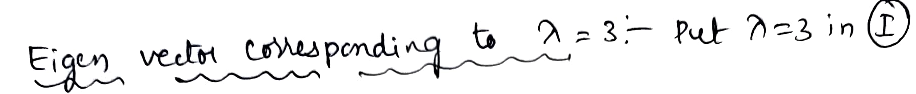 Eigen vector corresponding to λ = 3:- Put λ=3 in Ⓘ